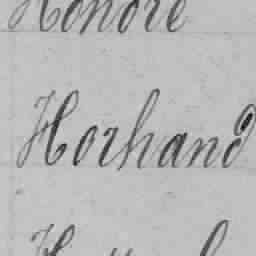 Honoré
Horhand